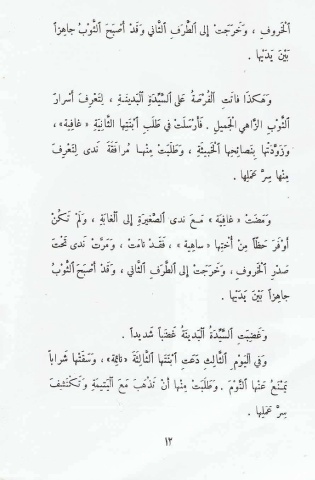 ٱلْخَروفِ ، وَخَرَجَتْ إلى ٱلطَّرَفِ ٱلثَّاني وَقَدْ أَصْبَحَ ٱلثَّوْبُ جاهِزاً
بَيْنَ يَدَيْها .
وَهٰكَذا فاتَتِ ٱلْفُرْصَةُ عَلى ٱلسَّيِّدَةِ ٱلْبَدينَةِ ، لِتَعْرِفَ أَسْرارَ
ٱلثَّوْبِ ٱلزَّاهي ٱلْجَميلِ . فَأَرْسَلَتْ في طَلَبِ ٱبْنَتِها ٱلثَّانِيَةِ « غافِيَة » ،
وَزَوَّدَتْها بِنَصائِحِها ٱلْخَبيثَةِ ، وَطَلَبَتْ مِنْهـا مُرافَقَةَ نَدى لِتَعْرِفَ
مِنْها سِرَّ عَمَلِها .
وَمَضَتْ « غافِيَة » مَـعَ ندى ٱلصَّغيرَةِ إلى ٱلْغابَةِ ، وَلَمْ تَـكُنْ
أَوْفَرَ حَظّاً مِنْ أُخْتِهـا « ساهِيَة » ، فَقَـدْ نامَتْ ، وَمَرَّتْ نَدى تَحْتَ
صَدْرِ ٱلْخَروفِ ، وَخَرَجَتْ إلى ٱلطَّرَفِ ٱلثَّاني ، وَقَـدْ أَصْبَحَ ٱلثَّـوْبُ
جاهِزاً بَيْنَ يَدَيْها .
وَغَضِبَتِ ٱلسَّيِّدَةُ ٱلْبَدينَةُ غَضَباً شَديداً .
وَفي ٱلْيَوْمِ ٱلثَّالِثِ دَعَتِ ٱبْنَتَها ٱلثَّالِثَةَ « نائِمَة » ، وَسَقَتْها شَراباً
يَمْنَعُ عَنْها ٱلنَّوْمَ . وَطَلَبَتْ مِنْها أَنْ تَذْهَبَ مَعَ ٱلْيَتيمَةِ وَتَـكْتَشِفَ
سِرَّ عَمَلِها .
١٢